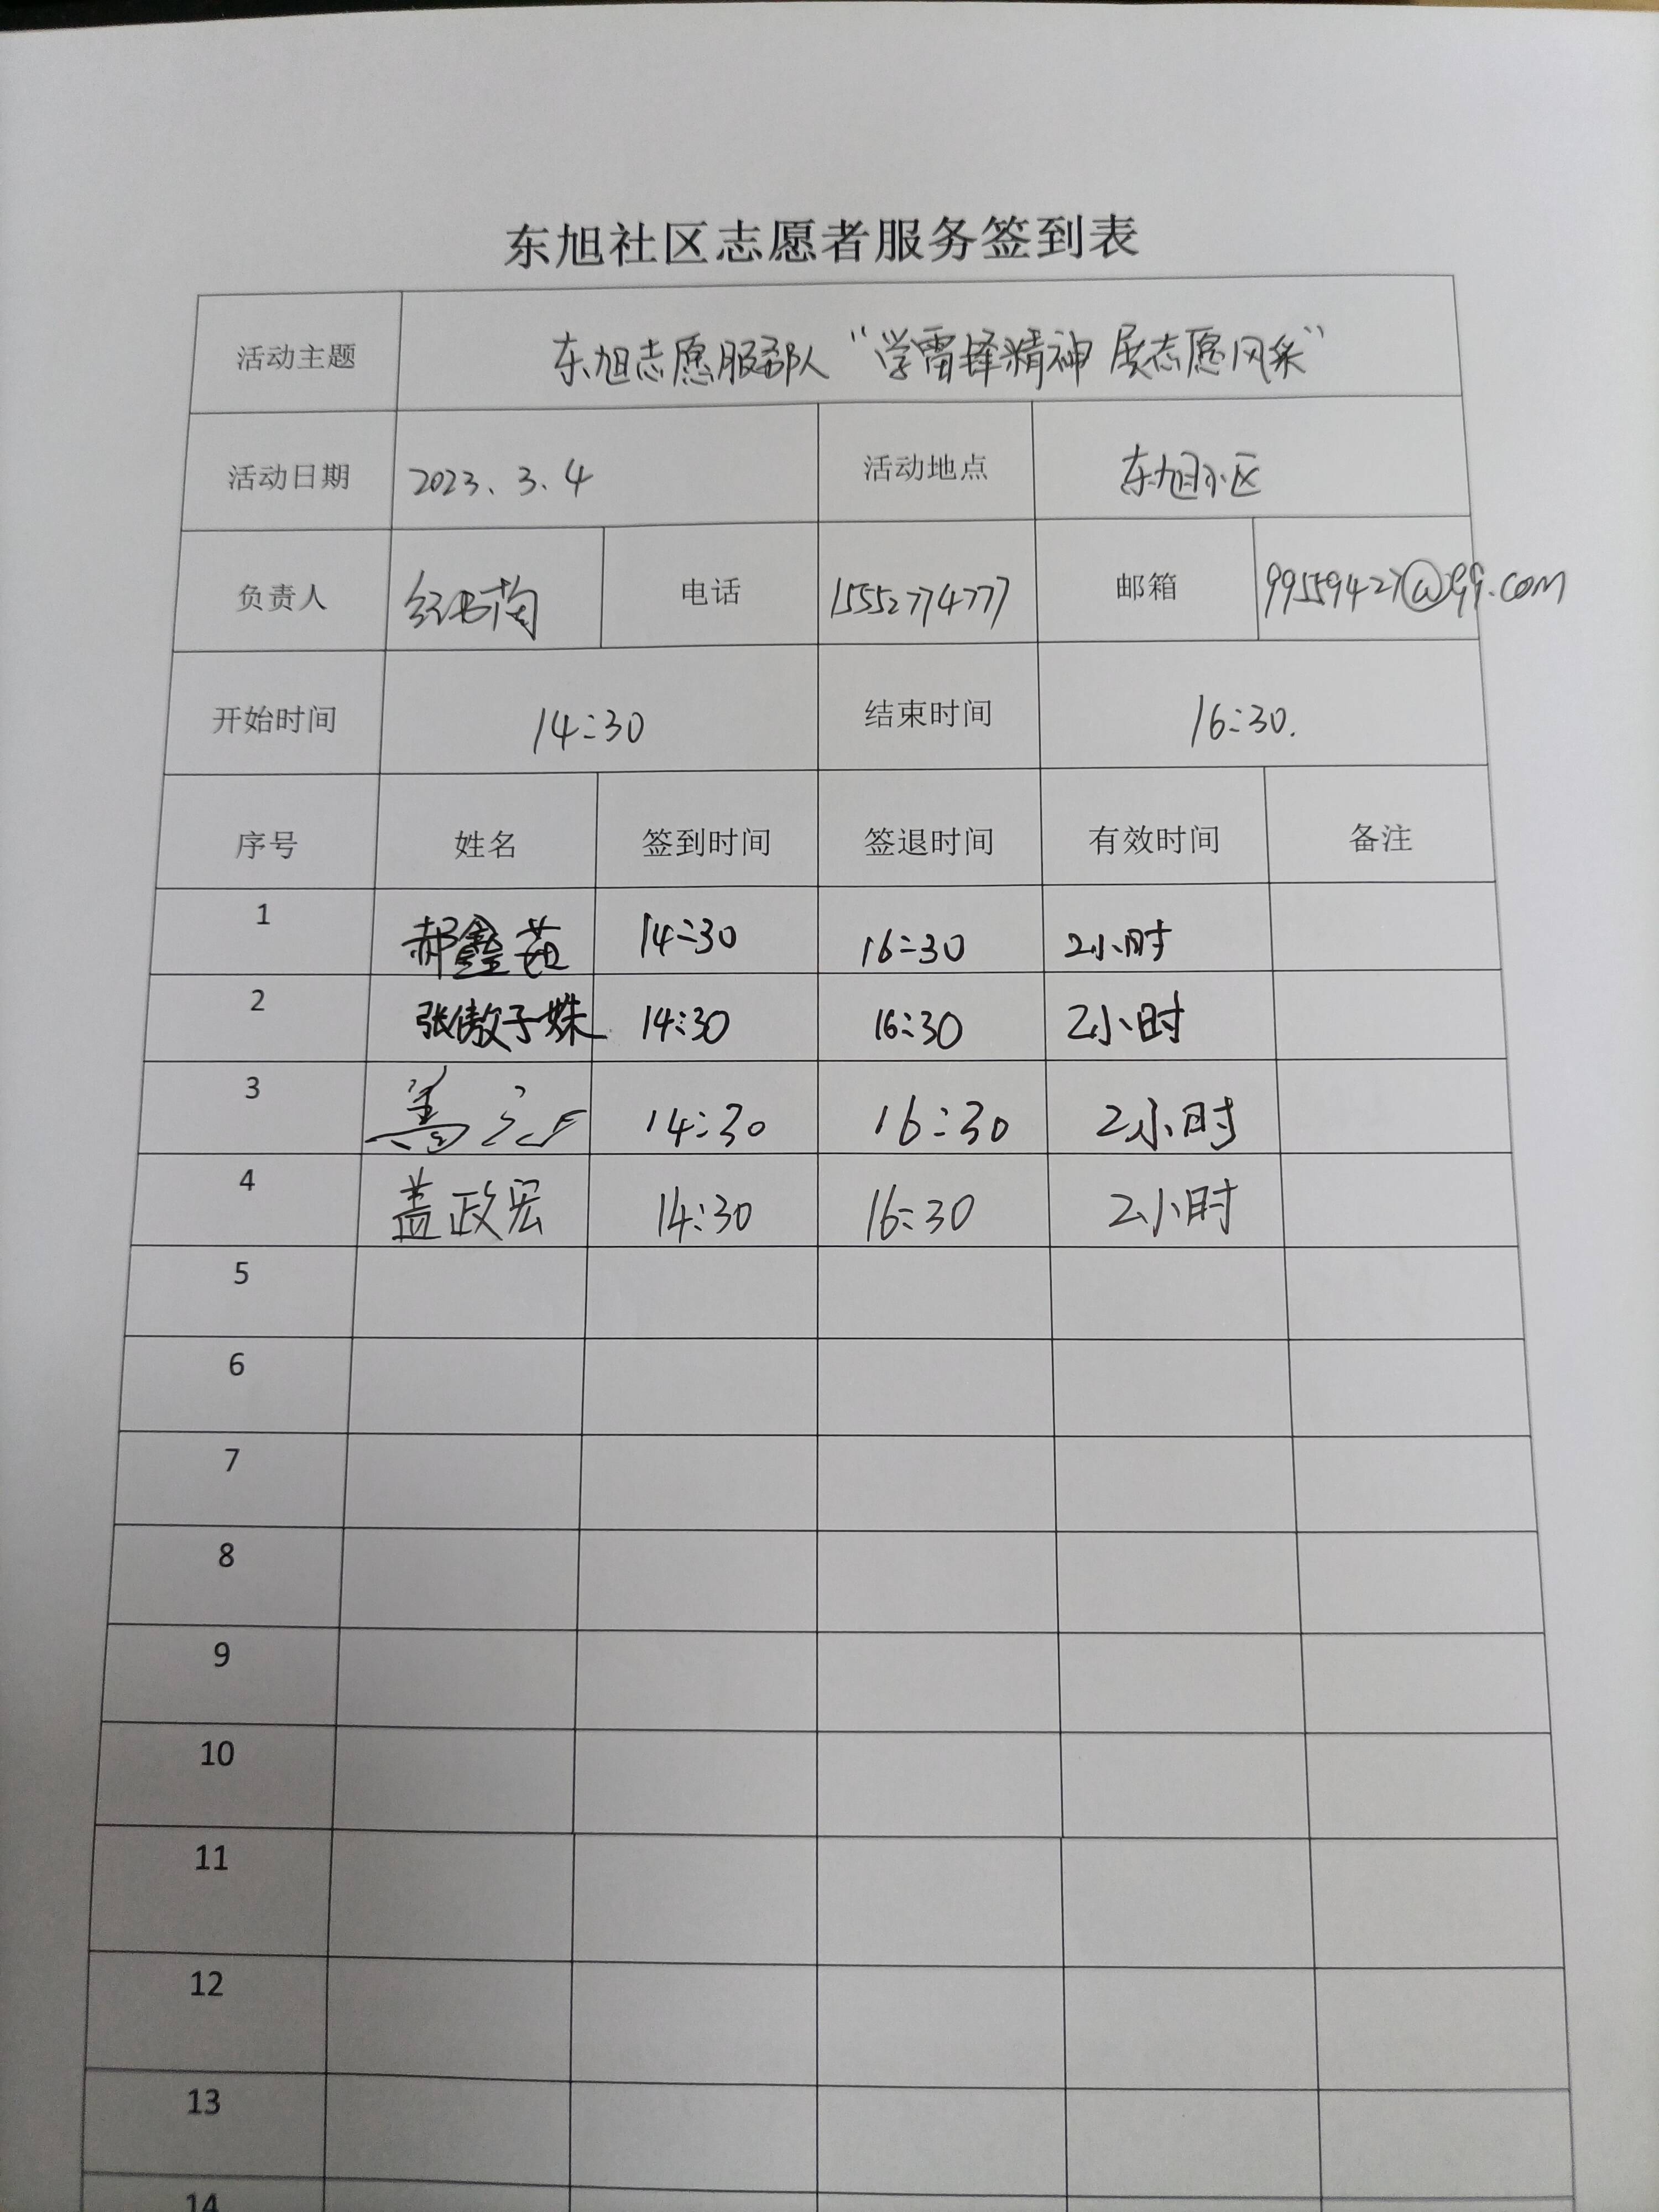 东旭社区志愿者服务签到表
活动主题 东旭志愿服务队 “学雷锋精神 展志愿风采”
活动日期 2023、3、4 活动地点 东旭小区
负责人 电话 15552774777 邮箱 99559427@qq.com
开始时间 14:30 结束时间 16:30.
序号 姓名 签到时间 签退时间 有效时间 备注
1 郝鑫茹 14:30 16:30 2小时
2 张傲子姝 14:30 16:30 2小时
3 14:30 16:30 2小时
4 盖政宏 14:30 16:30 2小时
5
6
7
8
9
10
11
12
13
14